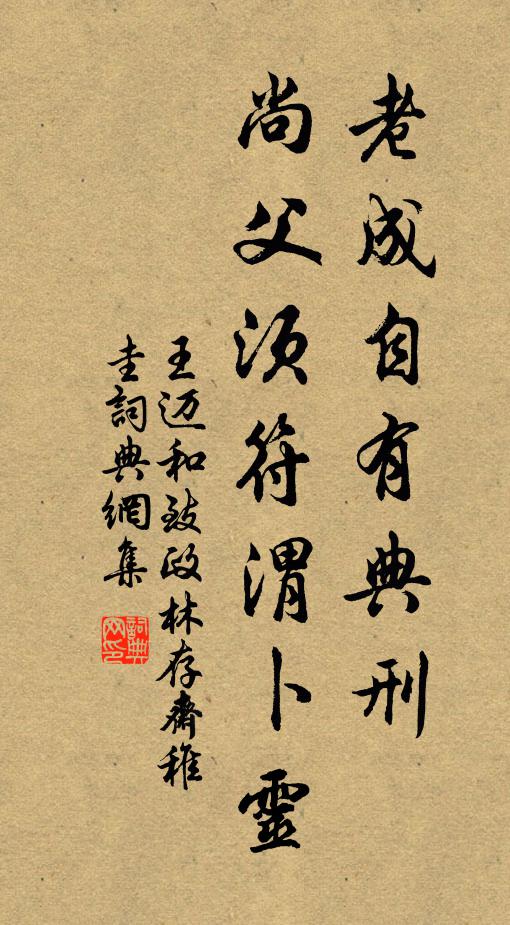 老成自有典刑
尚父须符渭卜靈
王迈和致政林存齋稚
圭詞典網集
詞典网印